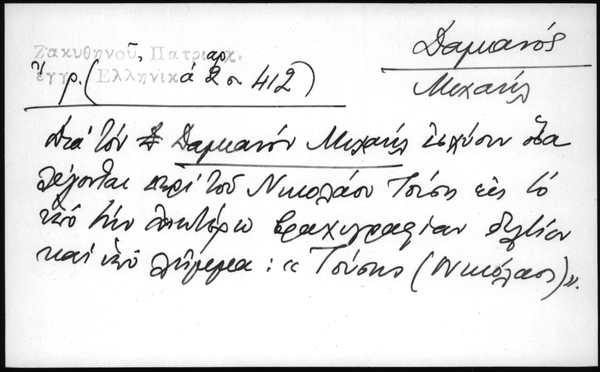 Ζακυθηνοῦ, Πατριαρ.
ἔγγρ. Ἑλληνικὰ 2 σ 412)
Δαμιανός
Μιχαήλ
Διὰ τὸν Δαμιανὸν Μιχαήλ ἰσχύουν ὅσα
λέγονται περὶ τοῦ Νικολάου Τσίση εἰς τὸ
ὑπὸ τὴν βραχυγραφίαν δελτίον
καὶ ὑπὸ λῆμμα: « (Νικόλαος)».